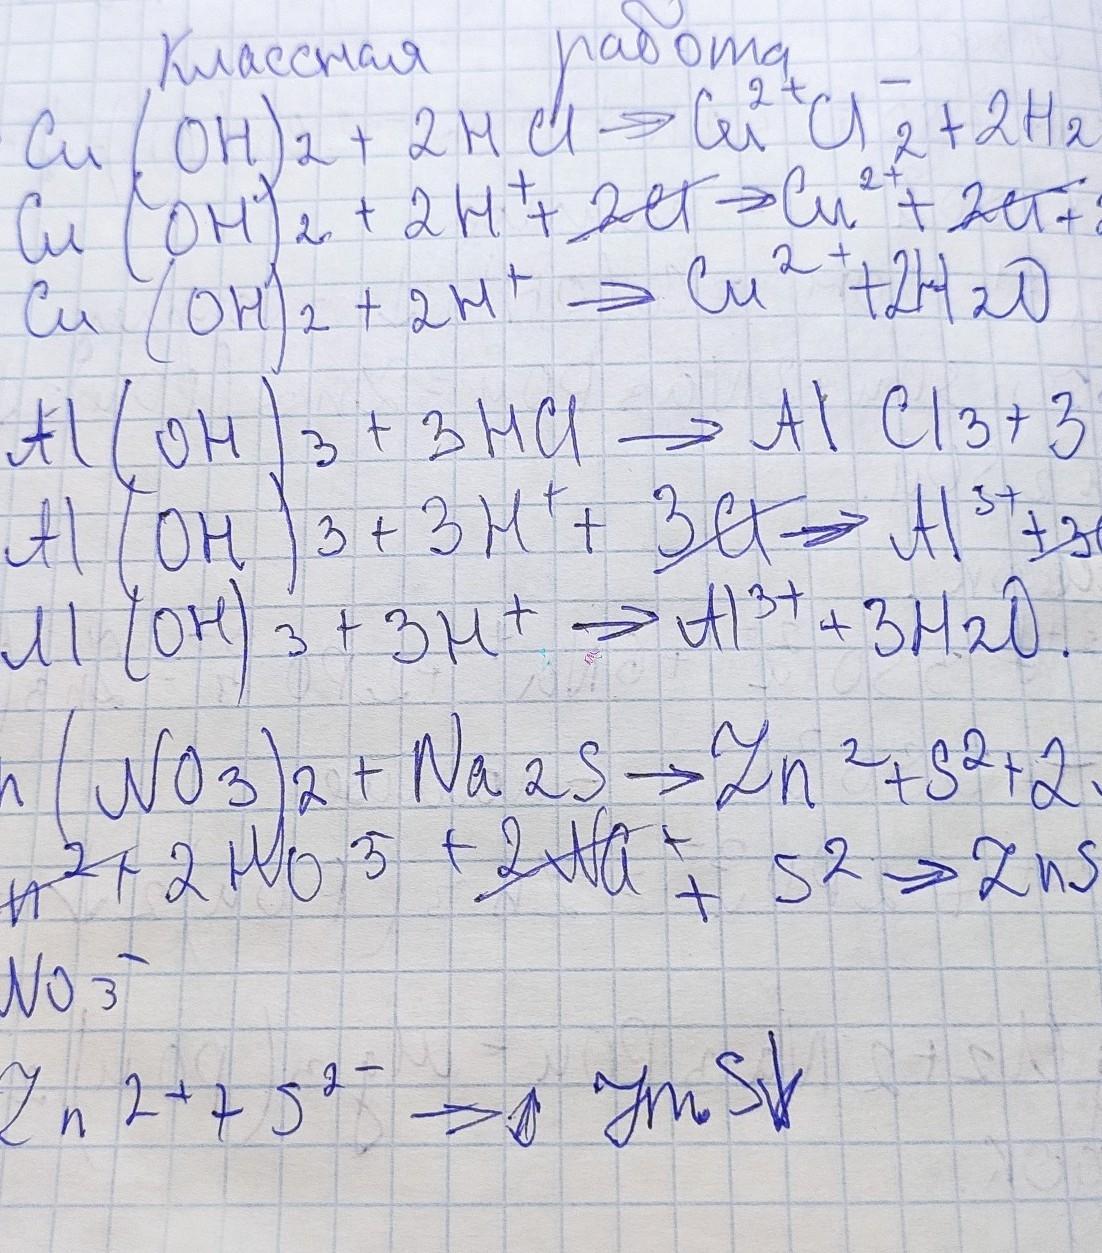 Классная работа
Cu(OH)2 + 2HCl → Cu²⁺Cl⁻2 + 2H2
Cu(OH)2 + 2H⁺ + 2Cl → Cu²⁺ + 2Cl +
Cu(OH)2 + 2H⁺ → Cu²⁺ + 2H2O
Al(OH)3 + 3HCl → AlCl3 + 3
Al(OH)3 + 3H⁺ + 3Cl → Al³⁺ + 3
Al(OH)3 + 3H⁺ → Al³⁺ + 3H2O.
n(NO3)2 + Na2S → Zn² + S² + 2
n²⁺ 2NO3 + 2Na⁺ + S² → ZnS
NO3⁻
Zn²⁺ + S²⁻ → ZnS↓